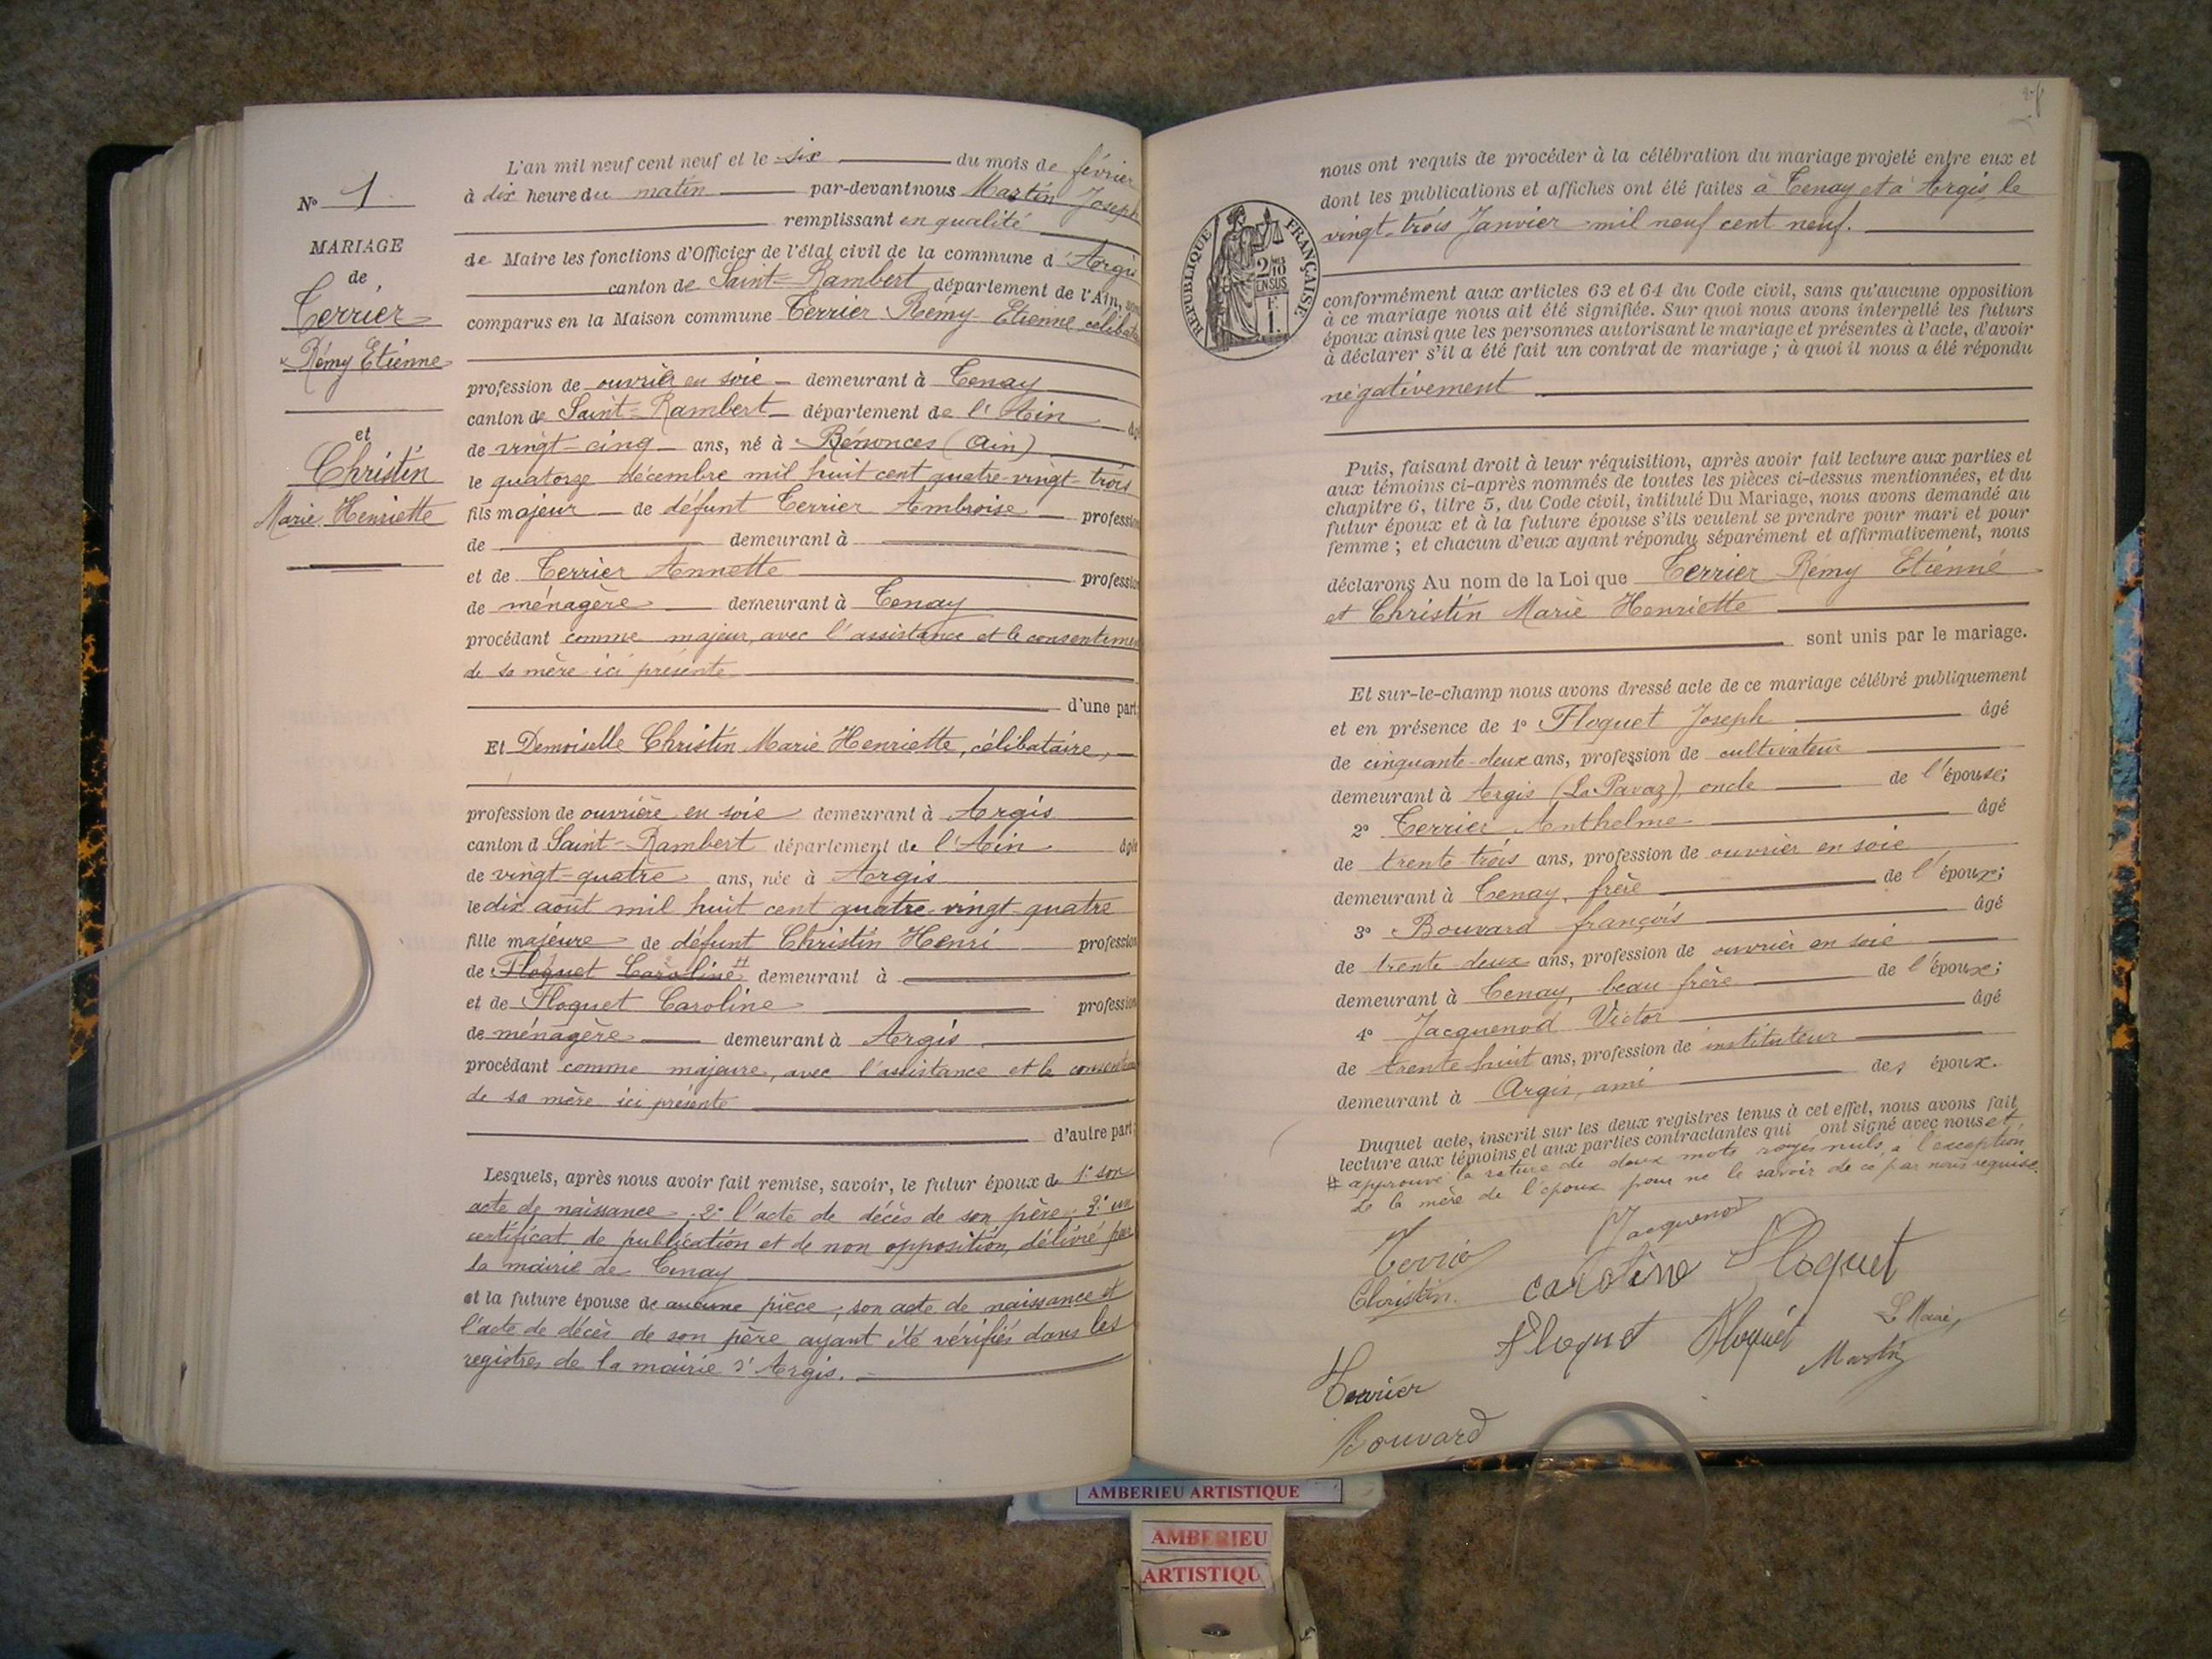 N° 1
MARIAGE
de
Terrier
Rémy Etienne
et
Christin
Marie Henriette
L'an mil neuf cent neuf et le six du mois de février
à dix heure du matin par-devant nous Martin Joseph
remplissant en qualité
de Maire les fonctions d'Officier de l'état civil de la commune d'Argis
canton de Saint-Rambert département de l'Ain, sont
comparus en la Maison commune Terrier Rémy Etienne célibata
profession de ouvrier en soie demeurant à Tenay
canton de Saint-Rambert département de l'Ain âgé
de vingt-cinq ans, né à Bénonces (Ain)
le quatorze décembre mil huit cent quatre-vingt-trois
fils majeur de défunt Terrier Ambroise profession
de demeurant à
et de Terrier Annette profession
de ménagère demeurant à Tenay
procédant comme majeur, avec l'assistance et le consenteme
de sa mère ici présente
d'une part;
Et Demoiselle Christin Marie Henriette, célibataire,
profession de ouvrière en soie demeurant à Argis
canton d Saint-Rambert département de l'Ain âgée
de vingt-quatre ans, née à Argis
le dix août mil huit cent quatre-vingt-quatre
fille majeure de défunt Christin Henri profession
de Floquet Caroline # demeurant à
et de Floquet Caroline profession
de ménagère demeurant à Argis
procédant comme majeure, avec l'assistance et le consentem
de sa mère ici présente
d'autre part;
Lesquels, après nous avoir fait remise, savoir, le futur époux de 1° son
acte de naissance, 2° l'acte de décès de son père, 3° un
certificat de publication et de non opposition, délivré par
la mairie de Tenay
et la future épouse de aucune pièce, son acte de naissance et
l'acte de décès de son père ayant été vérifiés dans les
registres de la mairie d'Argis.
nous ont requis de procéder à la célébration du mariage projeté entre eux et
dont les publications et affiches ont été faites à Tenay et à Argis, le
vingt-trois Janvier mil neuf cent neuf.
RÉPUBLIQUE FRANÇAISE
2/10
EN SUS
1 F.
conformément aux articles 63 et 64 du Code civil, sans qu'aucune opposition
à ce mariage nous ait été signifiée. Sur quoi nous avons interpellé les futurs
époux ainsi que les personnes autorisant le mariage et présentes à l'acte, d'avoir
à déclarer s'il a été fait un contrat de mariage ; à quoi il nous a été répondu
négativement
Puis, faisant droit à leur réquisition, après avoir fait lecture aux parties et
aux témoins ci-après nommés de toutes les pièces ci-dessus mentionnées, et du
chapitre 6, titre 5, du Code civil, intitulé Du Mariage, nous avons demandé au
futur époux et à la future épouse s'ils veulent se prendre pour mari et pour
femme ; et chacun d'eux ayant répondu séparément et affirmativement, nous
déclarons Au nom de la Loi que Terrier Rémy Etienne
et Christin Marie Henriette
sont unis par le mariage.
Et sur-le-champ nous avons dressé acte de ce mariage célébré publiquement
et en présence de 1° Floquet Joseph âgé
de cinquante-deux ans, profession de cultivateur
demeurant à Argis (La Pavaz), oncle de l'épouse;
2° Terrier Anthelme âgé
de trente-trois ans, profession de ouvrier en soie
demeurant à Tenay, frère de l'époux;
3° Bouvard françois âgé
de trente-deux ans, profession de ouvrier en soie
demeurant à Tenay, beau frère de l'époux;
4° Jacquenod Victor âgé
de trente huit ans, profession de instituteur
demeurant à Argis, ami des époux.
Duquel acte, inscrit sur les deux registres tenus à cet effet, nous avons fait
lecture aux témoins et aux parties contractantes qui ont signé avec nous et,
# approuvé la rature de deux mots rayés nuls, à l'exception
de la mère de l'époux pour ne le savoir de ce par nous requise.
Terrier
Jacquenod
Christin
Caroline Floquet
Floquet
Floquet
Le Maire,
Martin
Terrier
Bouvard
AMBERIEU ARTISTIQUE
AMBERIEU
ARTISTIQU